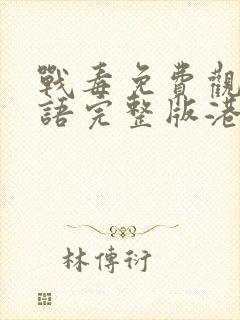 戰毒免費觀
語完整版港
林傳衍